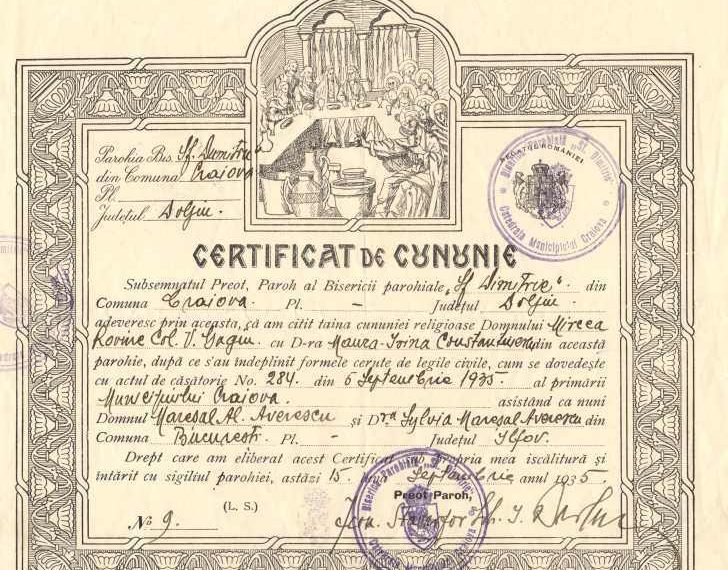 Parohia Bis. „Sf. Dumitru"
din Comuna Craiova
Pl.
Județul Doljiu.
REGATUL ROMÂNIEI
Biserica Parohială „St. Dimitrie"
Catedrala Municipiului Craiova
CERTIFICAT DE CUNUNIE
Subsemnatul Preot, Paroh al Bisericii parohiale „Sf Dimitrie" din
Comuna Craiova. Pl. - Județul Doljiu.
adeveresc prin aceasta, că am citit taina cununiei religioase Domnului Mircea
Rovine Col. V. cu D-ra Maura-Irina din această
parohie, după ce s'au îndeplinit formele cerute de legile civile, cum se dovedește
cu actul de căsătorie No. 284. din 5 Septembrie 1935 al primării
Municipiului Craiova. asistând ca nuni
Domnul Mareșal Al. Averescu și D-na Sylvia Mareșal Averescu din
Comuna București. Pl. - Județul Ilfov.
Drept care am eliberat acest Certificat sub propria mea iscălitură și
întărit cu sigiliul parohiei, astăzi 15 Septembrie anul 1935
(L. S.)
Preot Paroh,
№ 9.
Biserica Parohială „St. Dimitrie"
Catedrala Municipiului Craiova